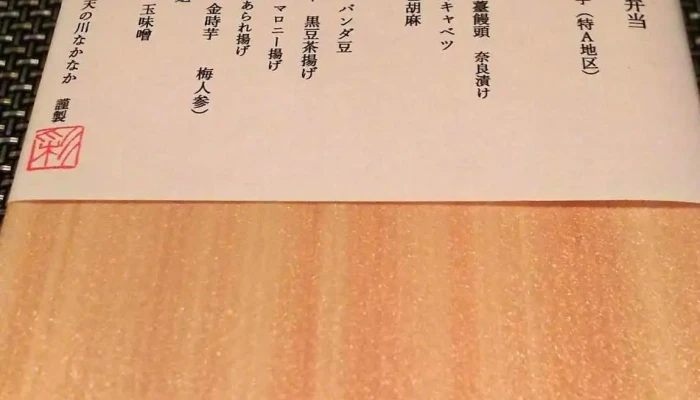 弁当
（特Ａ地区）
薹饅頭 奈良漬け
キャベツ
胡麻
パンダ豆
黒豆茶揚げ
マロニー揚げ
あられ揚げ
金時芋 梅人参）
玉味噌
天の川なかなか 謹製
彩